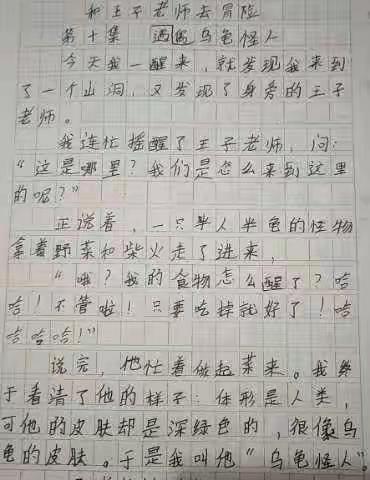 和王子老师去冒险
第十集 遇乌龟怪人
今天我一醒来，就发现我来到
了一个山洞，又发现了身旁的王子
老师。
我连忙摇醒了王子老师，问：
“这是哪里？我们是怎么来到这里
的呢？”
正说着，一只半人半龟的怪物
拿着野菜和柴火走了进来，
“哦？我的食物怎么醒了？哈
哈！不管啦！只要吃掉就好了！哈
哈哈哈！”
说完，他忙着做起菜来。我终
于看清了他的样子：体形是人类，
可他的皮肤却是深绿色的，很像乌
龟的皮肤。于是我叫他“乌龟怪人”。